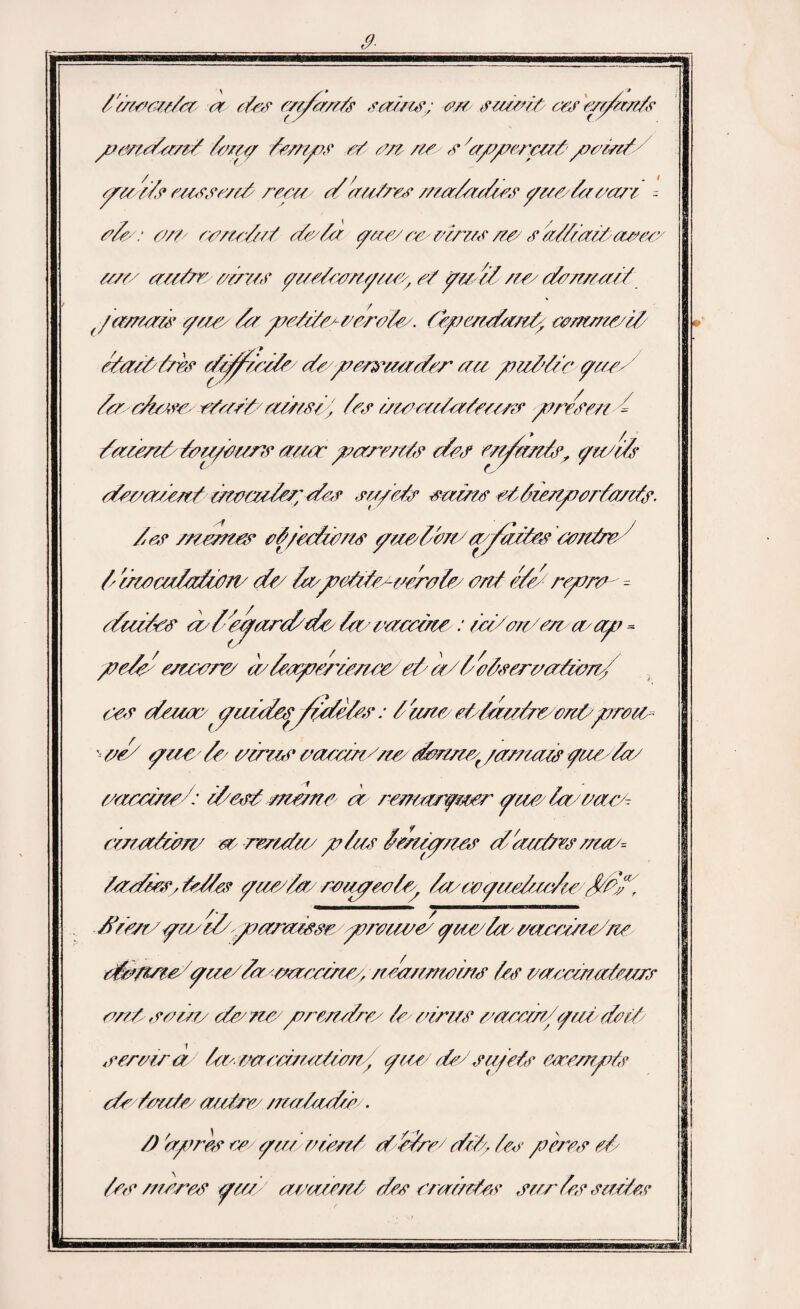 9.
l'inocula à des enfants sains; on suivit ces enfants
pendant long temps et on ne s'apperçut point
qu'ils eussent reçu d'autres maladies que la vari =
ole: on conclut de là que ce virus ne s'alliait avec
un autre virus quelconque, et qu'il ne donnait
jamais que la petite-vérole. Cependant, comme il
était très difficile de persuader au public que
la chose était ainsi, les inoculateurs présen =
taient toujours aux parents des enfants, qu'ils
devaient inoculer, des sujets sains et bienportants.
Les mêmes objections que l'on a faites contre
l'inoculation de la petite-vérole ont été repro =
duites à l'égard de la vaccine: ici on en a ap =
pelé encore à l'expérience et à l'observation,
ces deux guides fidèles: l'une et l'autre ont prou-
vé que le virus vaccin ne donne jamais que la
vaccine: il est même à remarquer que la vac-
cination a rendu plus bénignes d'autres ma =
ladies, telles que la rougeole, la coqueluche &a.
Bien qu'il paraisse prouvé que la vaccine ne
donne que la vaccine, néanmoins les vaccinateurs
ont soin de ne prendre le virus vaccin, qui doit
servir à la vaccination, que de sujets exempts
de toute autre maladie.
D'après ce qui vient d'être dit, les pères et
les mères qui avaient des craintes sur les suites